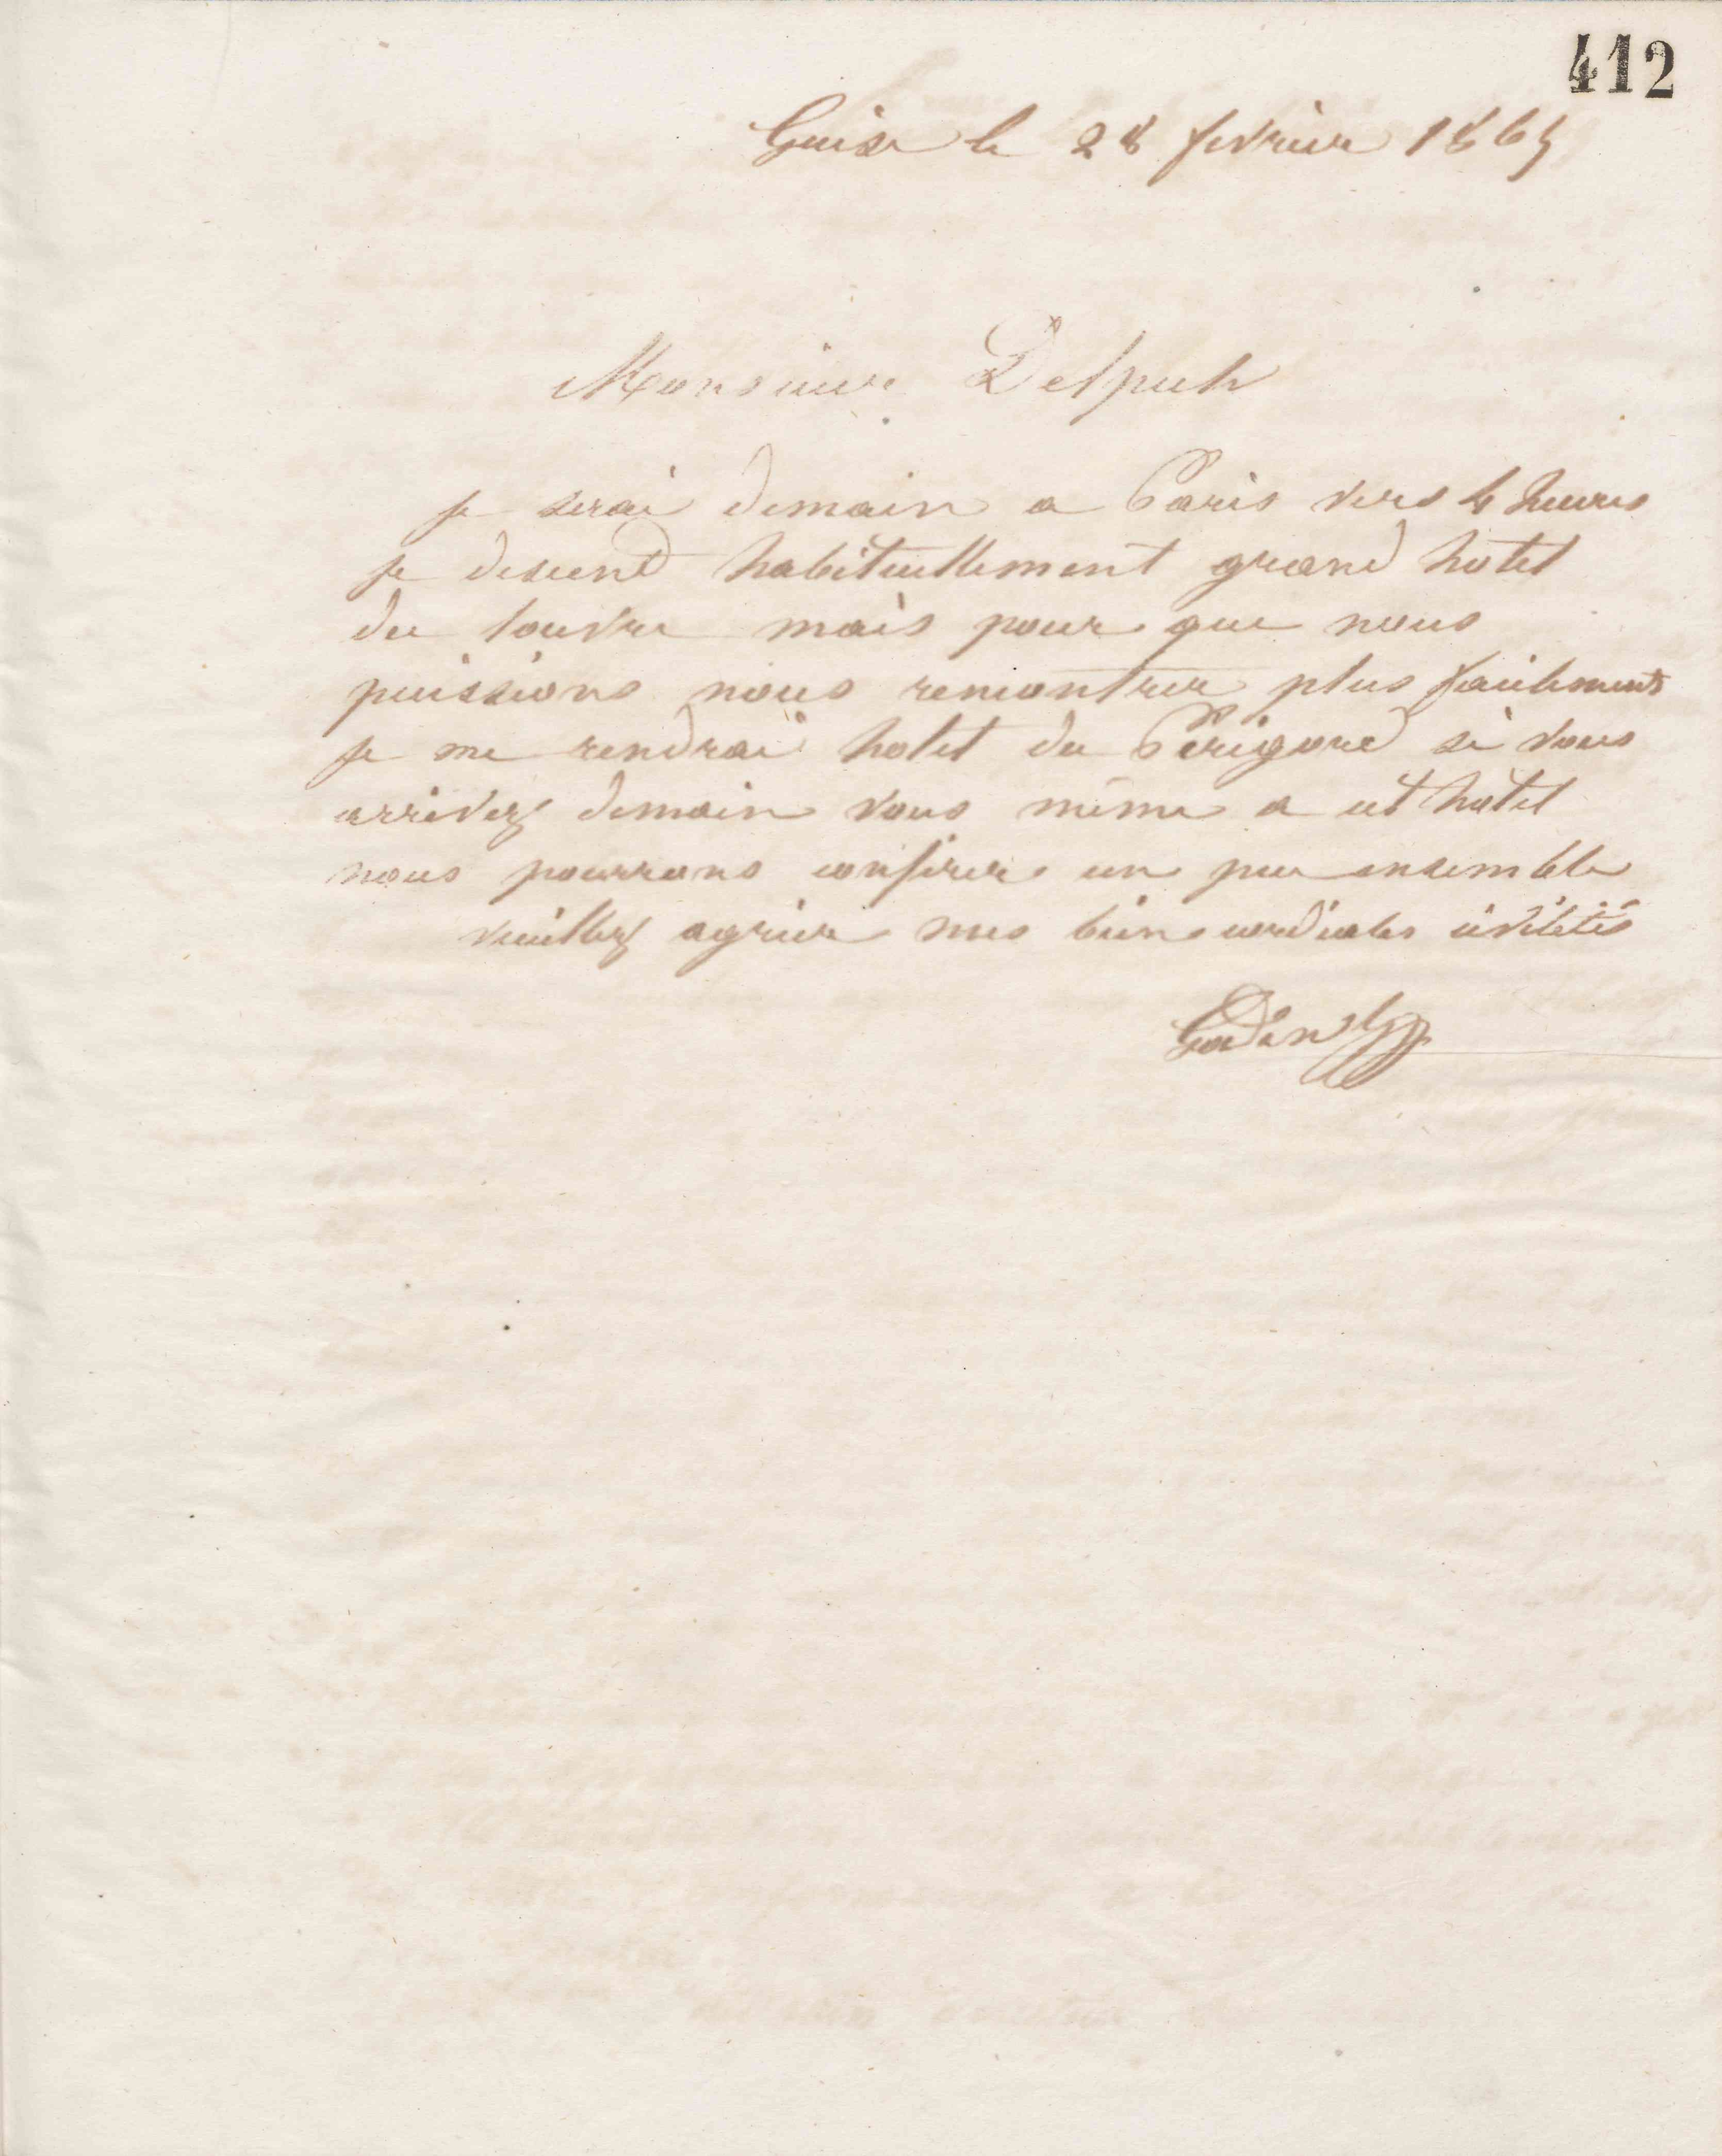 412
Guise le 28 fevrier 1865
Monsieur Delpech
je serai demain a Paris vers 4 heures
je descend habituellement grand hotel
du louvre mais pour que nous
puissions nous rencontrer plus facilement
je me rendrai hotel du Périgord si vous
arrivez demain vous même a cet hotel
nous pourrons conférer un peu ensemble
veuillez agréer mes bien cordiales civilités
Godin